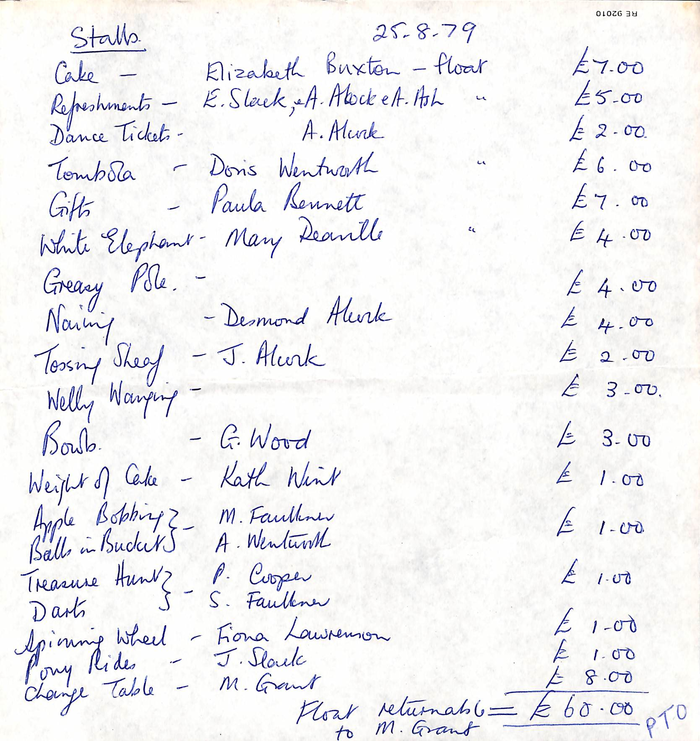 RE 92010
Stalls. 25-8-79
Cake - Elizabeth Buxton - float £7.00
Refreshments - E. Slack, e A. Alcock e A. Ash " £5.00
Dance Tickets - A. Alcock £2.00.
Tombola - Doris Wentworth " £6.00
Gifts - Paula Bennett £7.00
White Elephant - Mary Deaville " £4.00
Greasy Pole. - £4.00
Nailing - Desmond Alcock £4.00
Tossing Sheaf - J. Alcock £2.00
Welly Wanging - £3-00.
Bowls. - G. Wood £3-00
Weight of Cake - Kath Wint £1.00
Apple Bobbing } - M. Faulkner £1.00
Balls in Bucket } A. Wentworth
Treasure Hunt } - P. Cooper £1.00
Darts } S. Faulkner
Spinning Wheel - Fiona Lawrenson £1-00
Pony Rides - J. Slack £1.00
Change Table - M. Grant £8.00
Float returnable = £60.00
to M. Grant PTO